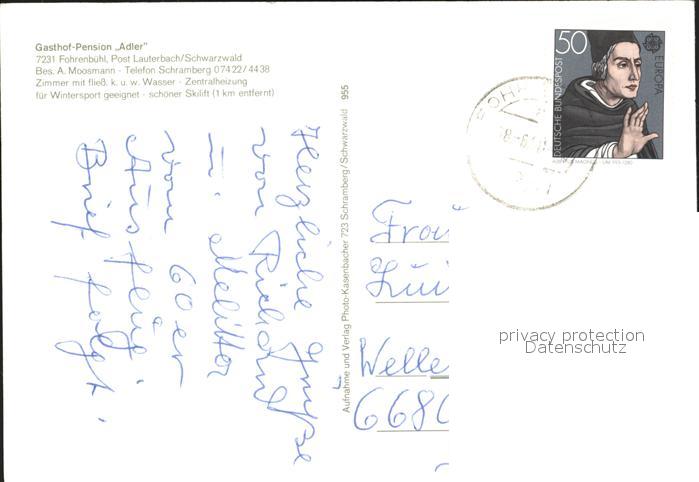 Gasthof-Pension „Adler"
7231 Fohrenbühl, Post Lauterbach/Schwarzwald
Bes. A. Moosmann - Telefon Schramberg 07422/4438
Zimmer mit fließ. k. u. w. Wasser - Zentralheizung
für Wintersport geeignet - schöner Skilift (1 km entfernt)
Herzliche Grüße
von
u. Melitta
vom 60 er
Ausflug.
Brief folgt.
Aufnahme und Verlag Photo-Kasenbacher 723 Schramberg/Schwarzwald 955
50
DEUTSCHE BUNDESPOST
EUROPA
Frau
Welle
668
privacy protection
Datenschutz